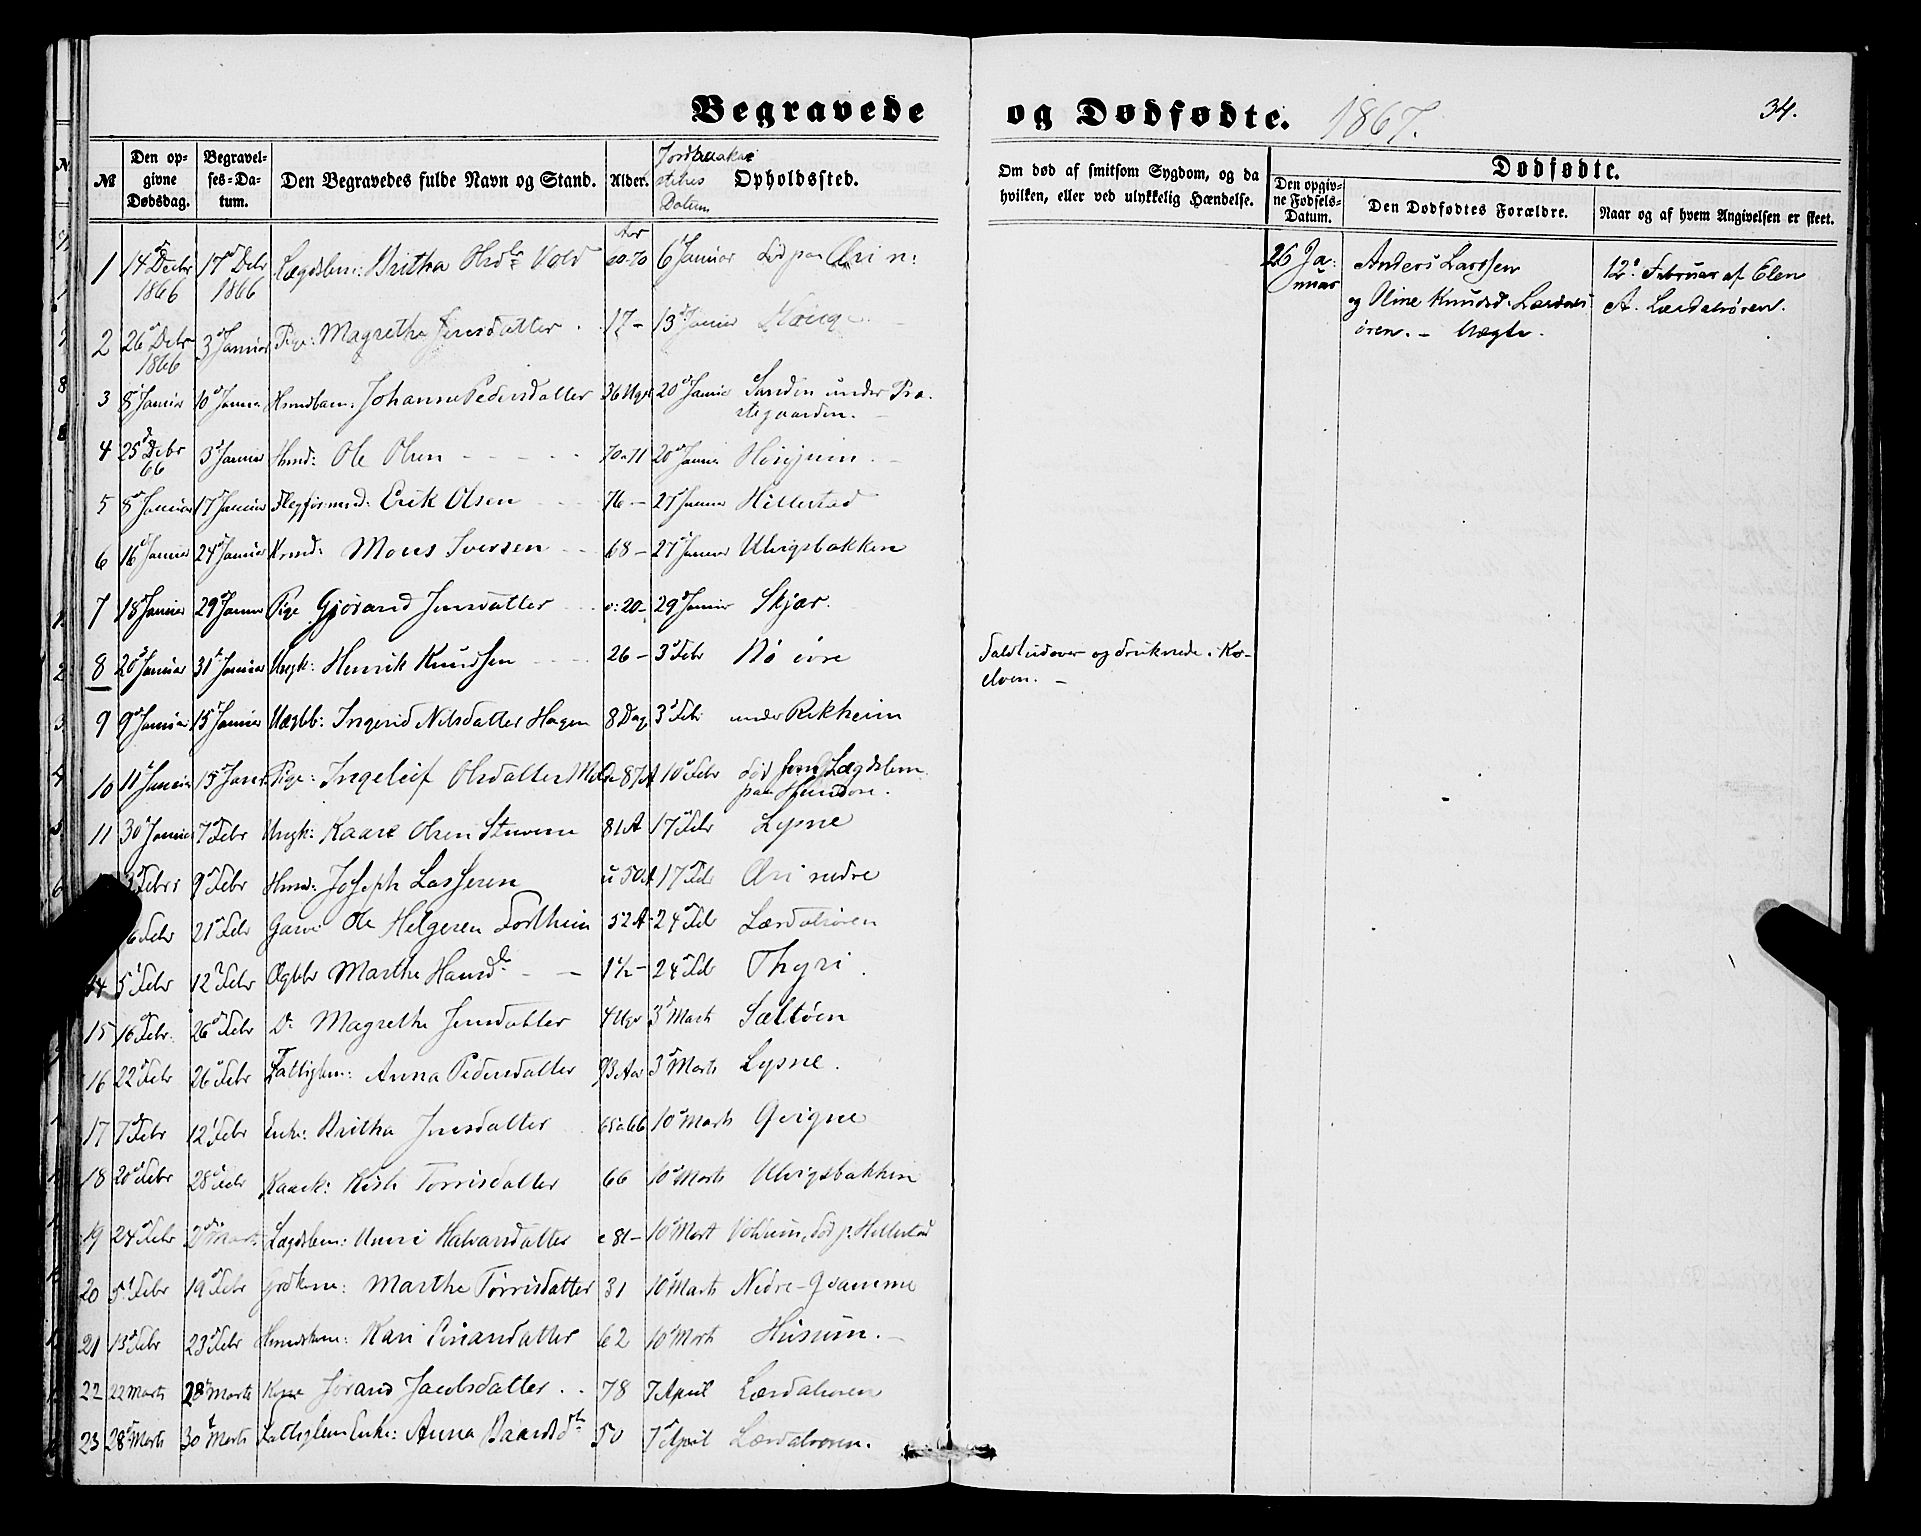 Begravede og Dødfødte. 1867. 34.
№ Den opgivne Dødsdag. Begravelses-Datum. Den Begravedes fulde Navn og Stand. Alder. Jordpaakastelses Datum Opholdssted. Om død af smitsom Sygdom, og da hvilken, eller ved ulykkelig Hændelse.
Dødfødte.
Den opgivne Fødsels-Datum. Den Dødfødtes Forældre. Naar og af hvem Angivelsen er skeet.
1 14 Decbr 1866 17 Debr 1866 Lægdslem: Britha Vold Aar 60-70 6 Januar død paa Øri n:
26 Januar Anders Larssen og Oline Knudsd. Lærdalsøren. – Uægte. 12 Februar af Elen A. Lærdalsøren.
2 26 Debr 1866 3 Januar Pige: Magrethe Jensdatter 17 – 13 Januar Hauge
3 8 Januar 10 Januar Johanne Pedersdatter 36 Uger 20 Januar Sanden under Præstegaarden.
4 25 Debr 66 3 Januar Hmd: Ole Olsen 70 a 71 20 Januar
5 8 Januar 17 Januar Erik Olsen 76 – 27 Januar Hillestad
6 16 Januar 24 Januar Mons Iversen 68 – 27 Januar Ulvigsbakken
7 18 Januar 29 Januar Pige Gjørand Jensdatter o: 20 – 29 Januar Skjær.
8 20 Januar 31 Januar Ungk: Henrik Knudsen 26 – 3 Febr øvre Faldt udover og druknede i elven. –
9 9 Januar 15 Januar Ingerid Nilsdatter Hagen 8 Dage 3 Febr under Rikheim
10 11 Januar 15 Januar Pige: Ingeleif Olsdatter 10 Febr død som Lægdslem paa
11 30 Januar 7 Febr Ungk: Kaare Olsen 81 A 17 Febr Lysne
3 Febr 9 Febr Hmd: Joseph Lassesen u 50 A 17 Febr Øri nedre
6 Febr 21 Febr Ole Helgesen 52 A 24 Febr Lærdalsøren
14 5 Febr 12 Febr Ægtbb Marthe Hansd 1½ – 24 Feb Thyri.
15 16 Febr. 26 Febr D. Magrethe Jensdatter 4 Uger 3 Marts Sæltøen
16 22 Febr 26 Febr Fattiglem: Anna Pedersdatter 93 Aar 3 Marts Lysne.
17 7 Febr 12 Febr Enke: Britha Jensdatter 65 a 66 10 Marts Qvigne
18 20 Febr 28 Febr Torrisdatter 66 10 Marts Ulvigsbakken
19 24 Febr 2 Marts Lægdslem: Halvarsdatter c 81 – 10 Mart død p: Hillestad
20 5 Febr 19 Febr Marthe Tørrisdatter 31 10 Marts Nedre-Qvamme
21 13 Febr 23 Febr Kari Einarsdatter 62 10 Marts Husum. –
22 22 Marts 28 Marts Kone Jørand Jacobsdatter 78 7 April Lærdalsøren
23 28 Marts 30 Marts Fattiglem Enke: Anna 50 7 April Lærdalsøren.